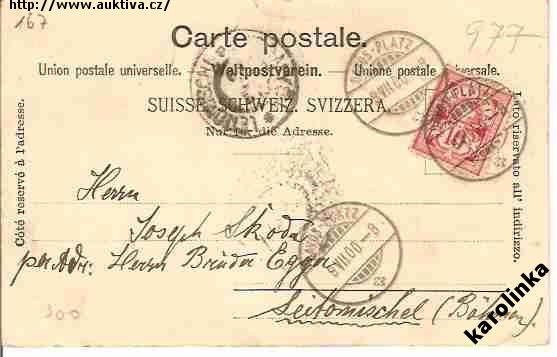 http://www.auktiva.cz/
167
977
Carte postale.
Union postale universelle. Weltpostverein. Unione postale universale.
SUISSE. SCHWEIZ. SVIZZERA.
Nur für die Adresse.
Côté réservé à l'adresse.
Lato riservato all' indirizzo.
10
Herrn
Joseph Skoda
per Adr: Herrn Brüder Egger
Leitomischel (Böhmen)
300
karolinka